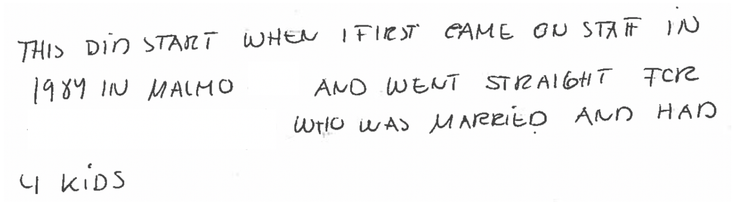 THIS DID START WHEN I FIRST CAME ON STAFF IN
1984 IN MALMO AND WENT STRAIGHT FOR
WHO WAS MARRIED AND HAD
4 KIDS